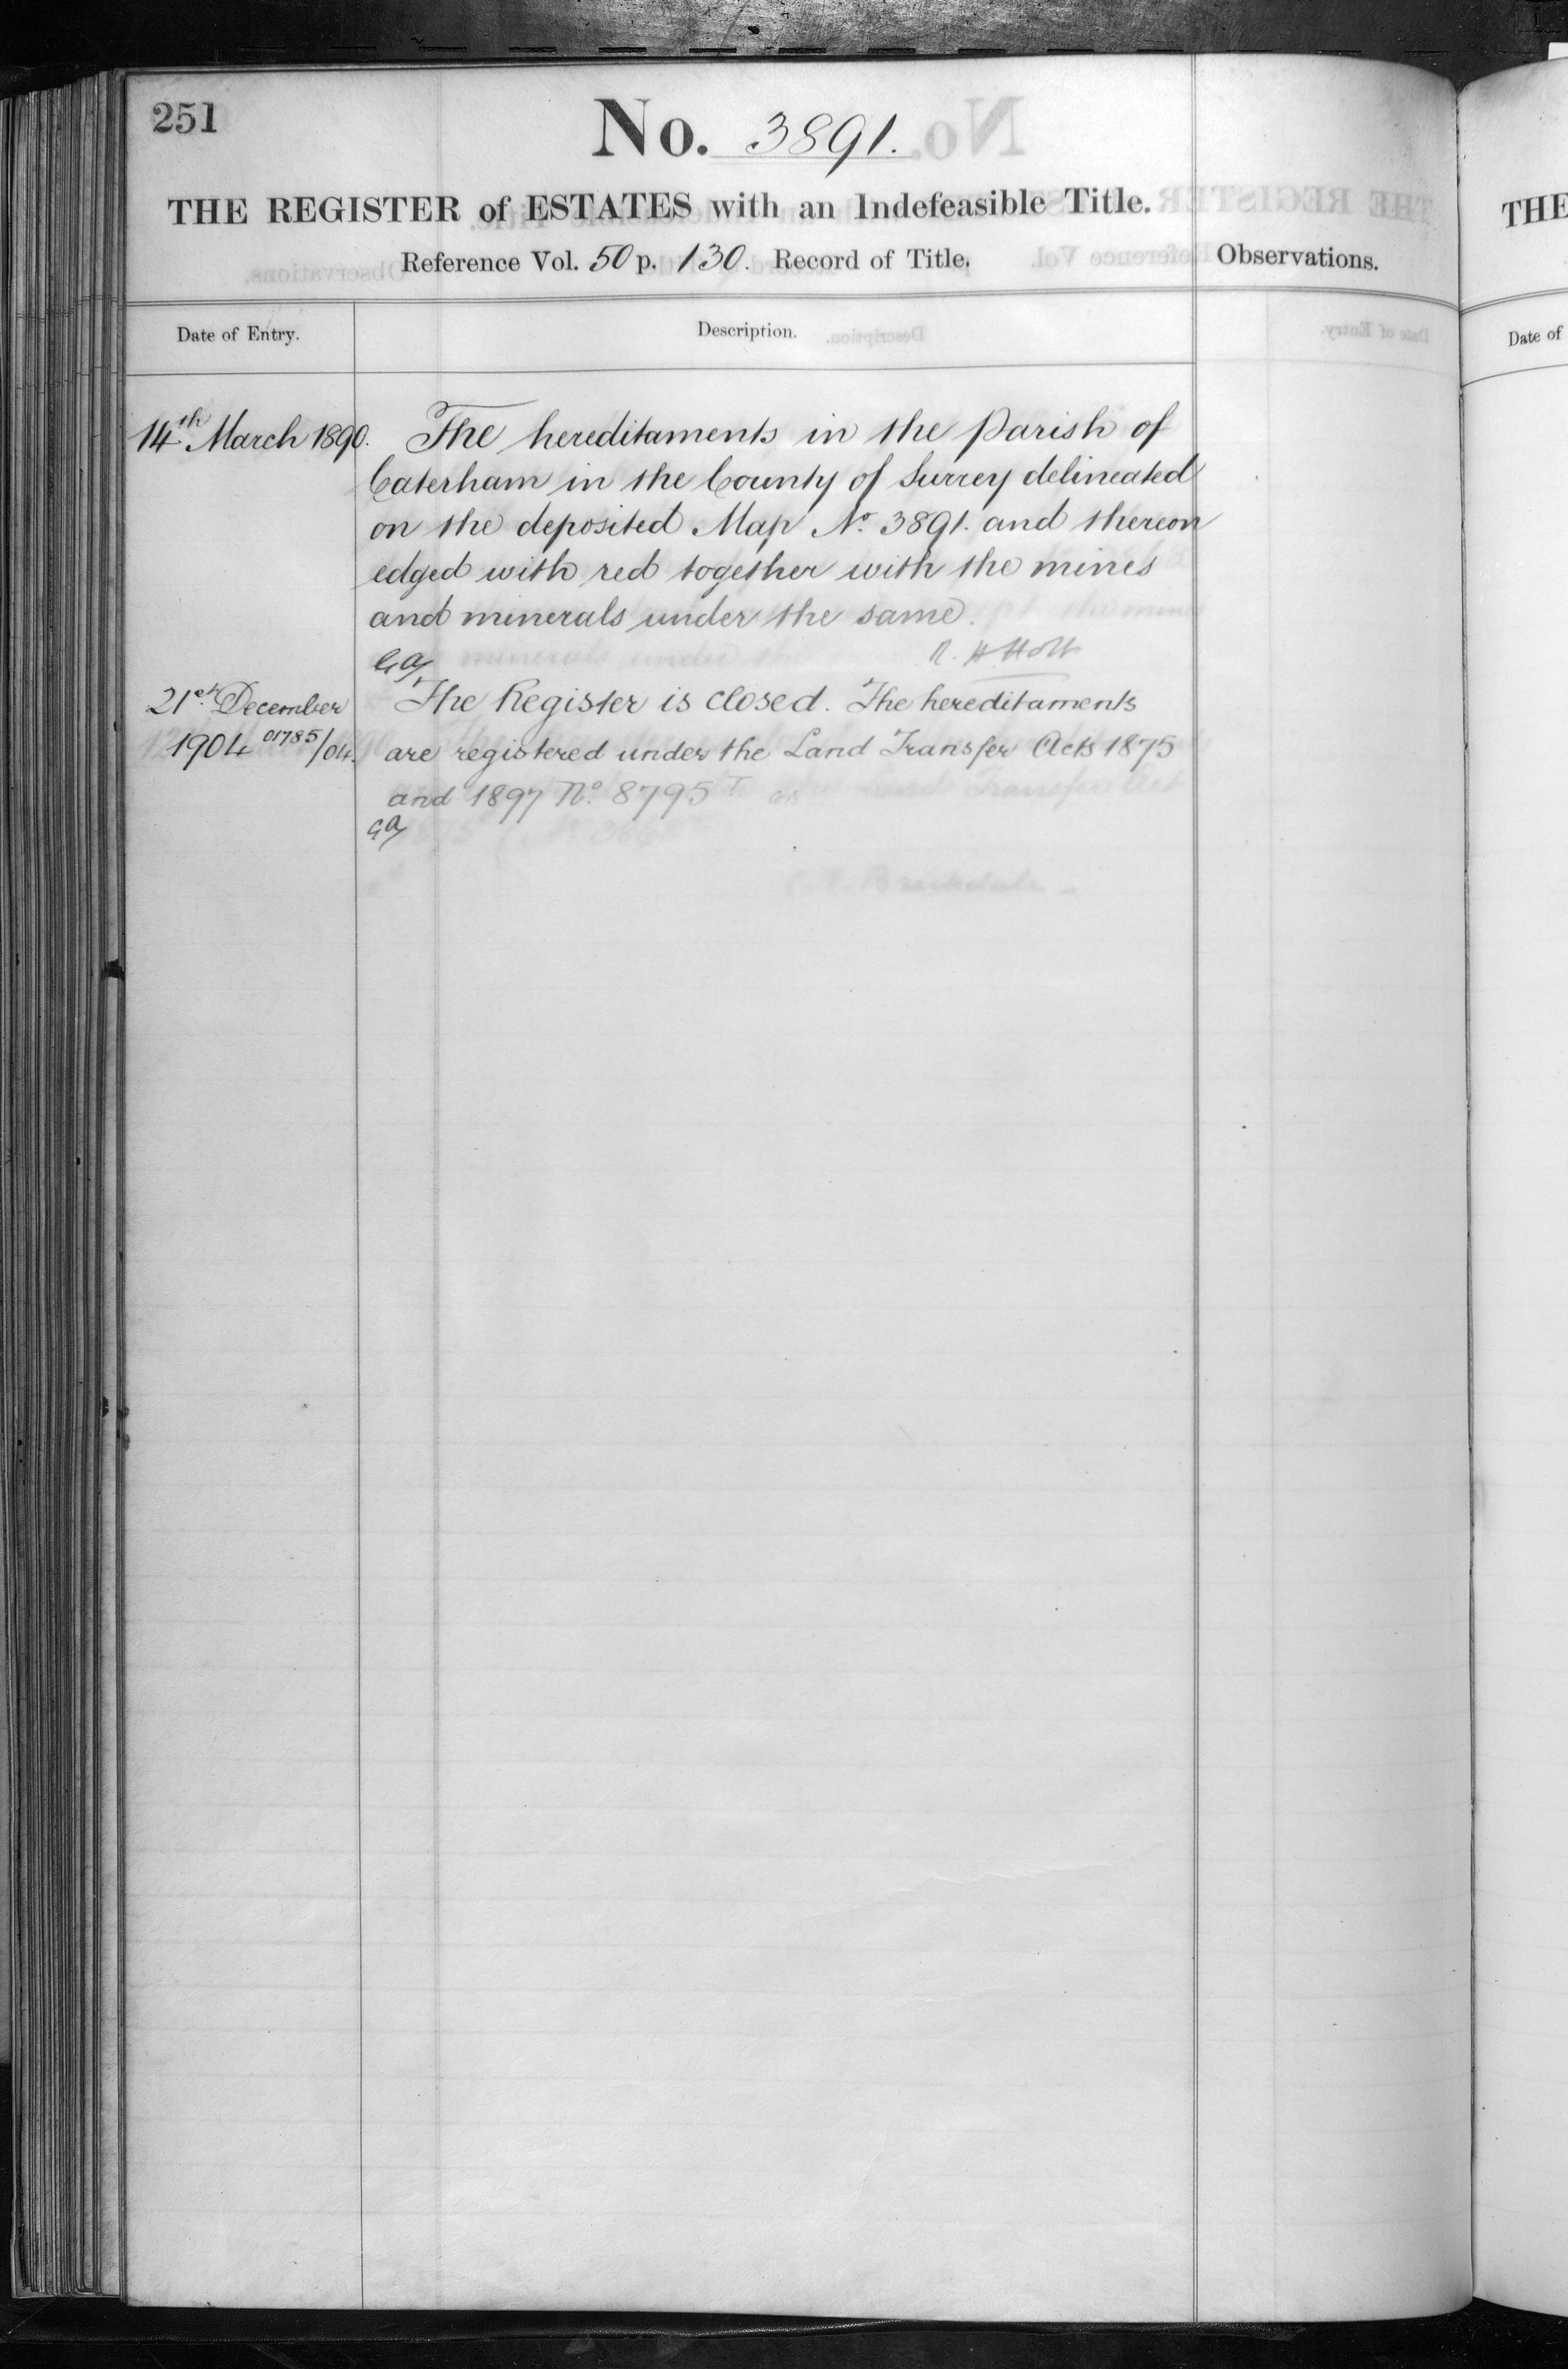 251
No. 3891.
THE REGISTER of ESTATES with an Indefeasible Title.
Reference Vol. 50 p. 130. Record of Title.
Observations.
Date of Entry.
Description.
14th March 1890.
The hereditaments in the Parish of
Caterham in the County of Surrey delineated
on the deposited Map No. 3891. and thereon
edged with red together with the mines
and minerals under the same.
R. H Holt
21st December
1904 01785/04.
The Register is closed. The hereditaments
are registered under the Land Transfer Acts 1875
and 1897 No. 8795
THE
Date of